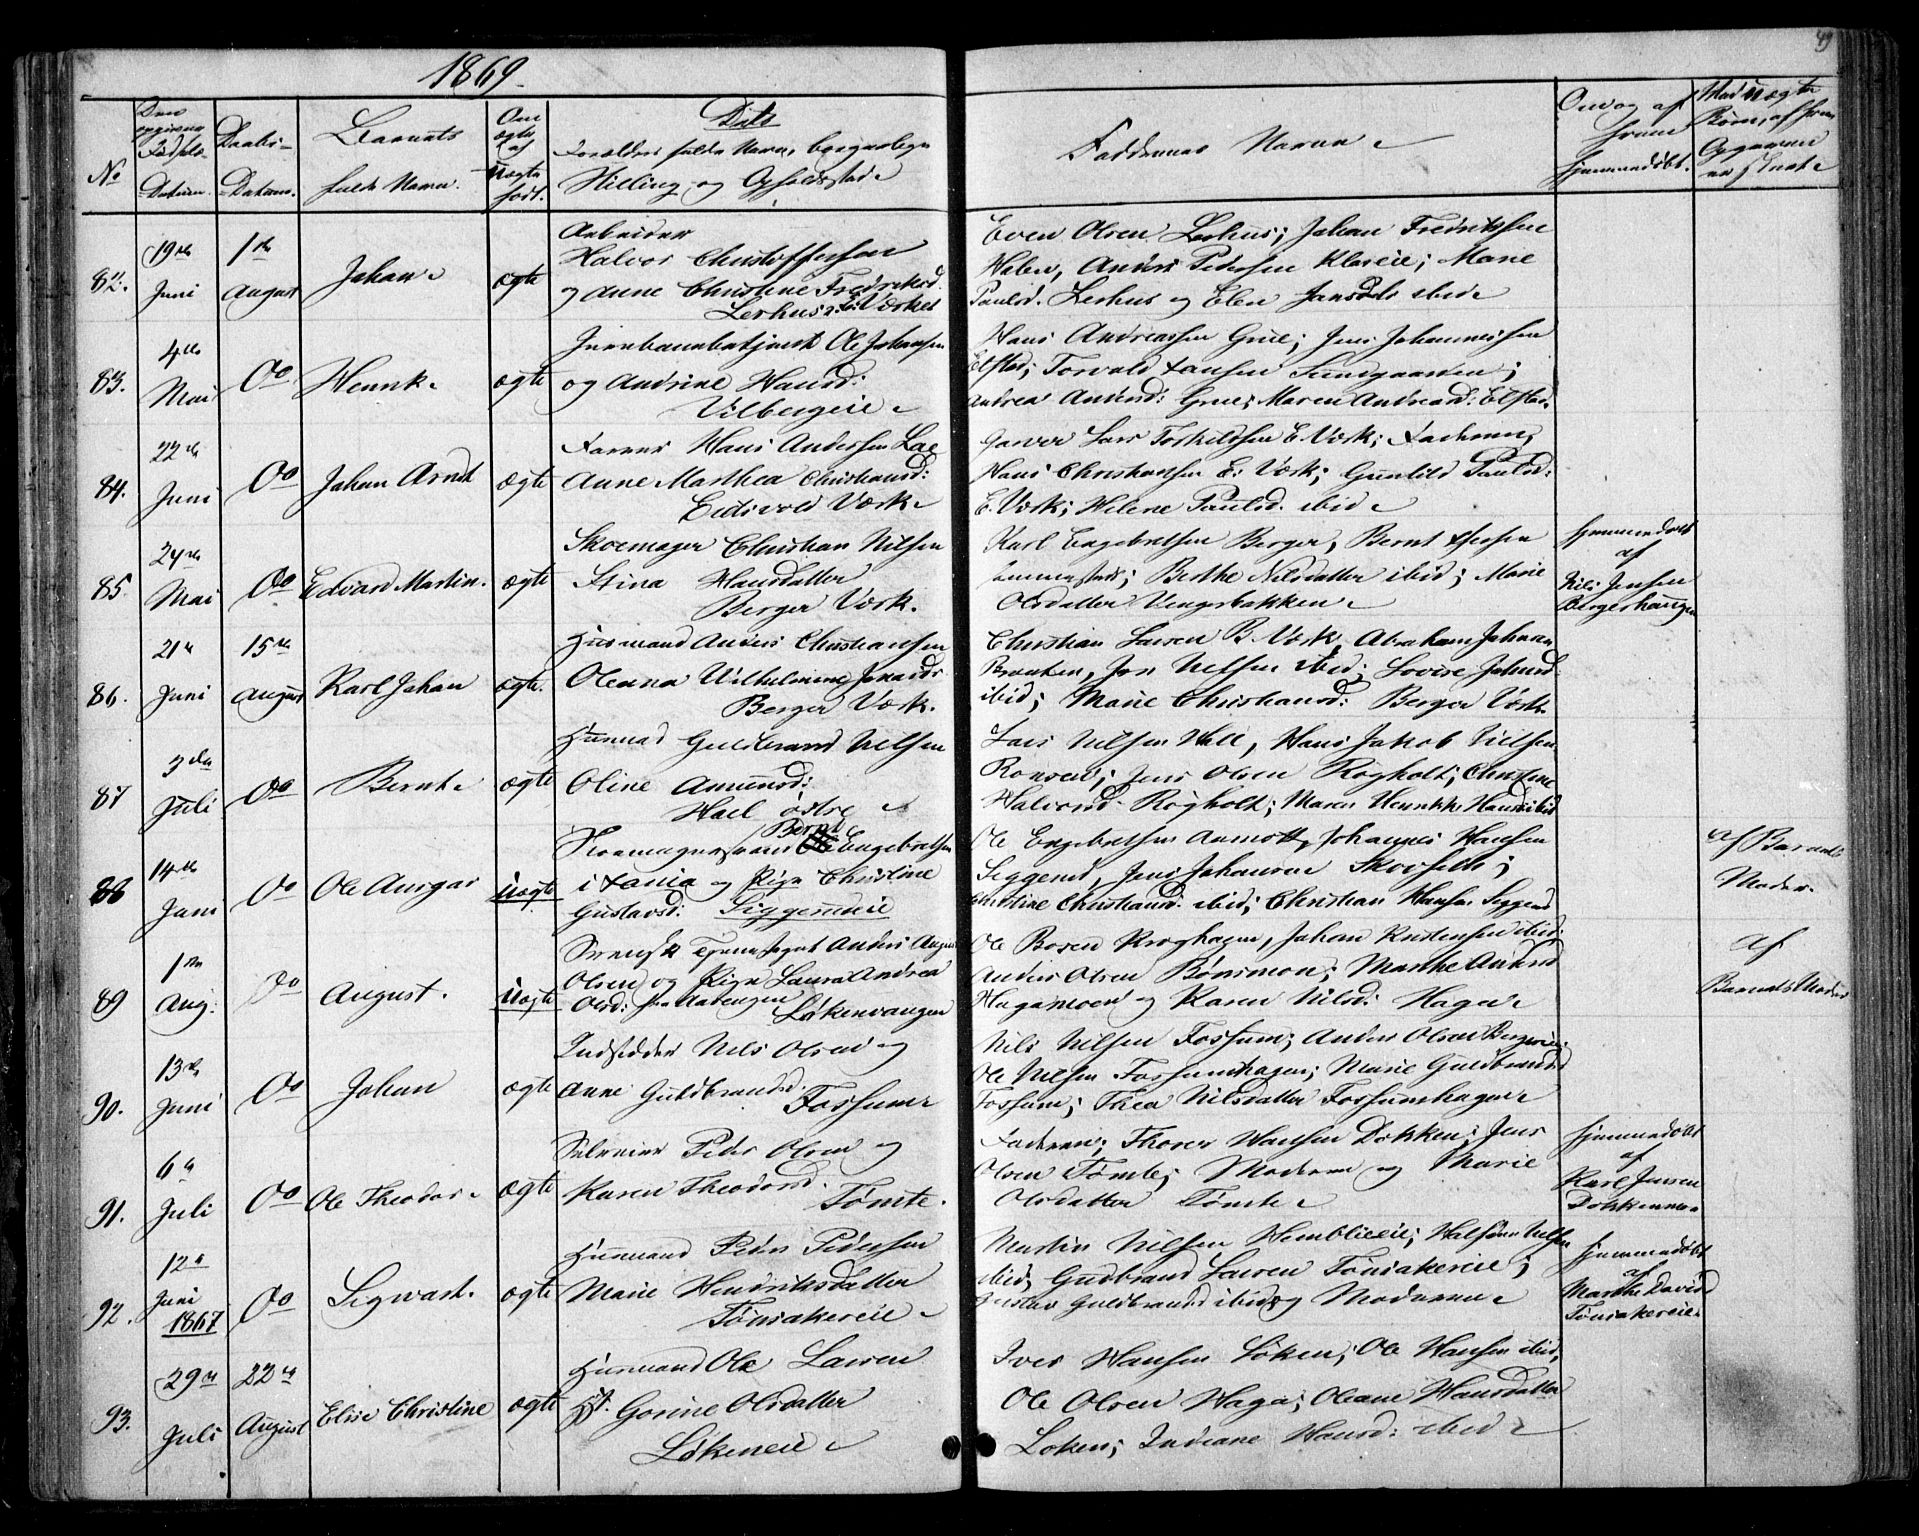 1869.
49
No
Den
opgivne
Fødsels-
Datum.
Daabs-
Datum.
Barnets
fulde Navn.
Om
ægte
af
Uægte
født.
Dets
Forældres fulde Navn, borgerlige
Stilling og Opholdsted
Faddernes Navne
Om og af
hvem
hjemmedøbt.
Ved Uægte
Børn, af hvem
Opgaven
er skeet
82.
19de
Juni
1ste
August
Johan
ægte
Arbeider
Halvor Christoffersen
og Anne Christine Fredriksd.
Leshus E: Værket
Even Olsen Leshus; Johan Fredriksen
Holen, Anders Pedersen Klareie; Marie
Paulsd. Leshus og Elen Jansdtr ibid
83.
4de
Mai
Do
Henrik
ægte
Jernbanebetjent Ole Johansen
og Andrine Hansd:
Vilbergeie
Hans Andreassen Grue; Jens Johannessen
Elstad; Torvald Hansen Sundgaarden;
Andrea Andersd: Grue; Maren Andreasd: Elstad
84.
22de
Juni
Do
Johan Arndt
ægte
Farver Hans Andersen Lae
Anne Marthea Christiansd:
Eidsvold Værk
Garver Lars Torkildsen E. Værk; Faderen,
Hans Christiansen E: Værk; Gunhild Paulsd:
E. Værk; Helene Paulsd. ibid
85.
24de
Mai
Do
Edvard Martin.
ægte
Skoemager Christian Nilsen
Stina Hansdatter
Berger Værk.
Karl Engebretsen Berger, Bernt
Berthe Nilsdatter ibid; Marie
Olsdatter Vengsbakken
hjemmedøbt
af
Nils Jensen
Bergershaugen
86.
21
Juni
15de
August
Karl Johan
ægte.
Husmand Anders Christiansen
Oleana Wilhelmine Jonasdtr
Berger Værk.
Christian Larsen B. Værk, Abraham Johnsen
Braaten, Jon Nilsen ibid; Lovise Johnsd:
ibid; Marie Christiansd: Berger Værk.
87
3die
Juli
Do
Bernt
ægte
Husmand Guldbrand Nilsen
Oline Amundsd:
Hall østre
Lars Nilsen Hall, Hans Jakob Nilsen
Jens Olsen Rogholt; Christine
Halvorsd. Rogholt; Maren Henrikke Hansd ibid
88
14de
Juni
Do
Ole Ansgar
uægte
Bernt
Skoemagersvend Ole Engebretsen
i Xania og Pige Christine
Gustavsd: Siggerudeie
Ole Engebretsen Aamodt, Johannes Hansen
Siggerud, Jens Johansen Skovseth;
Christine Christiansd. ibid; Christian Hansen Siggerud
af Barnets
Moder
89
1ste
Aug:
Do
August.
uægte
Svensk Tjenestegut Anders August
Olsen og Pige Laura Andrea
Olsd: fra
Løkenvangen
Ole Boesen Kroghagen, Johan Kristensen ibid:
Anders Olsen Bønsmoen; Marthe Andersd
Hagamoen og Karen Nilsd: Haga
af
Barnets Moder
90.
13de
Juni
Do
Johan
ægte
Indsidder Nils Olsen og
Anne Guldbrandsd.
Fossum
Nils Nilsen Fossum; Anders Olsen Bergerie
Ole Nilsen Fossumhagen; Marie Guldbrandsd
Fossum; Thea Nilsdatter Fossumhagen
91.
6te
Juli
Do
Ole Theodor
ægte
Selveier Peder Olsen og
Karen Theodorsd.
Tømte.
Faderen; Thorer Hansen Dokken; Jens
Olsen Tømte; Moderen og Marie
Olsdatter Tømte
hjemmedøbt
af
Karl Jensen
Dokkenmo
92.
12te
Juni
1867
Do
Sigwart.
ægte
Husmand Peder Pedersen
Marie Hendriksdatter
Tønsakereie
Martin Nilsen Hemblieeie; Halfdan Nilsen
ibid, Gudbrand Larsen Tønsakereie;
Gustav Guldbrandsd ibid og Moderen
hjemmedøbt
af
Marthe Davidsd
Tønsakereie
93.
29de
Juli
22de
August
Elise Christine
ægte
Husmand Ole Larsen
H. Gorine Olsdatter
Løkeneie
Iver Hansen Løken; Ole Hansen ibid,
Ole Olsen Haga; Oleane Hansdatter
Løken; Indiane Hansd: ibid